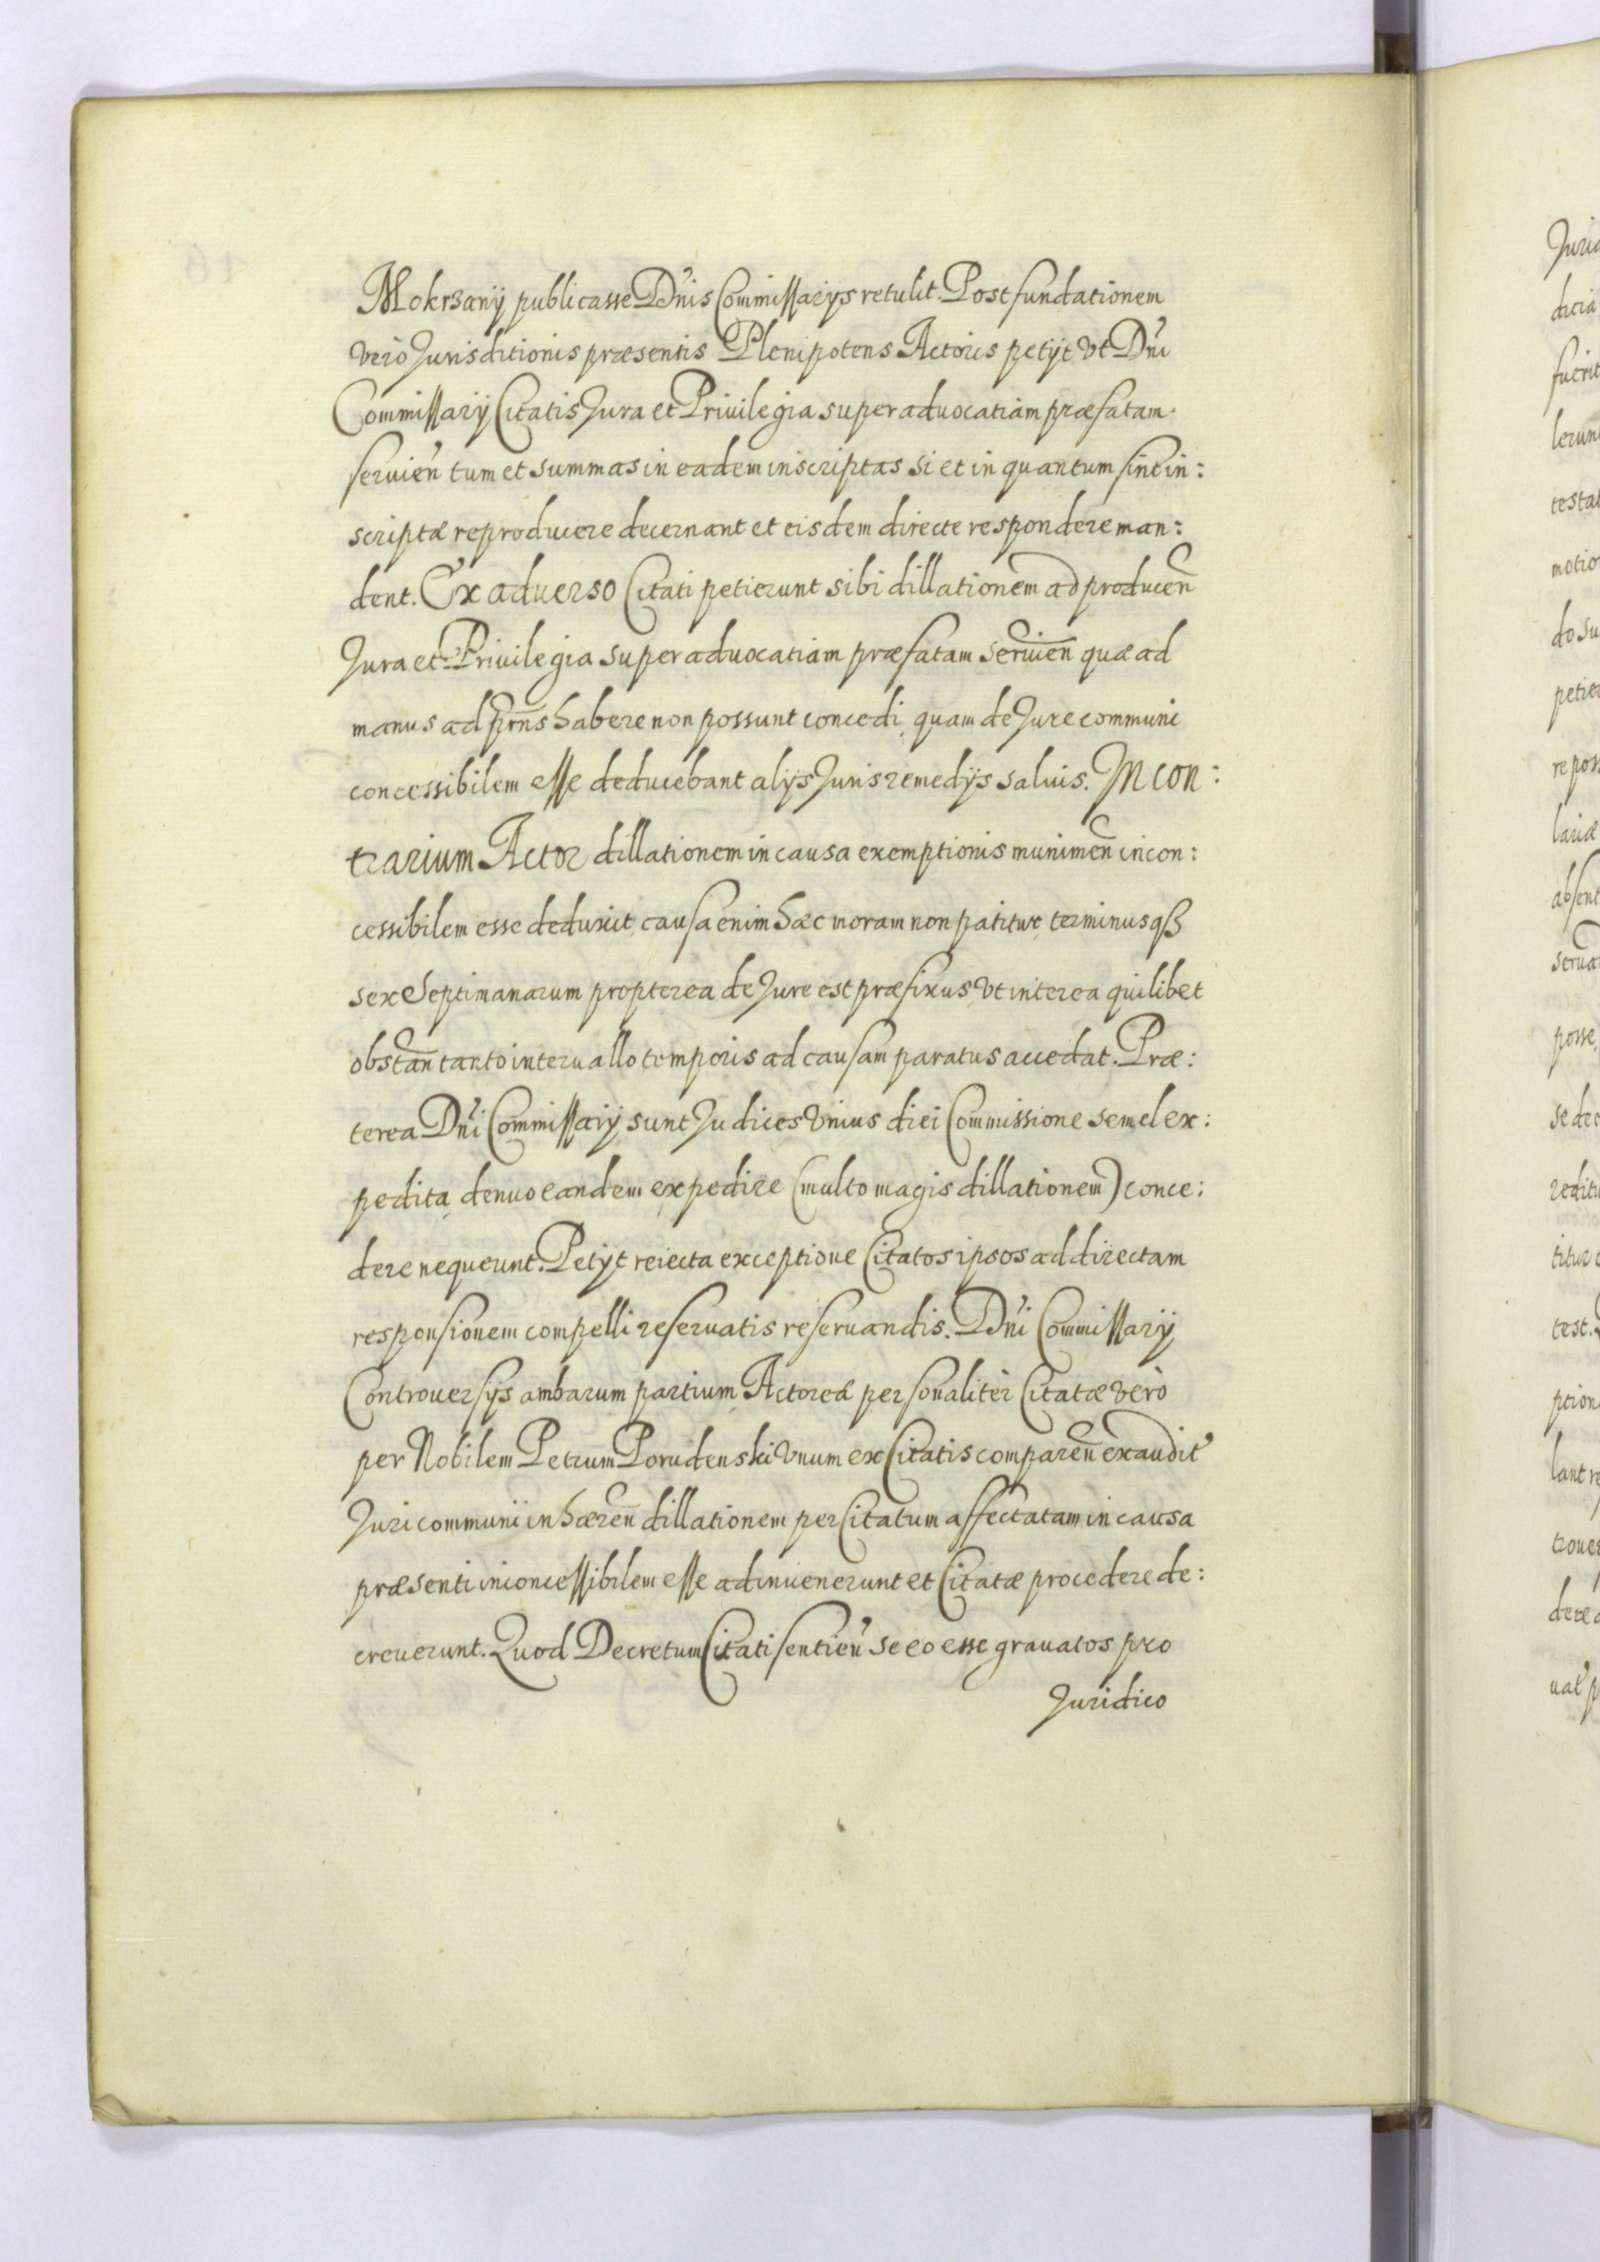 Mokrsany publicasse Dn̄is Commissarÿs retulit. Post fundationem
verò Jurisditionis præsentis Plenipotens Actoris petÿt vt Dn̄i
Commissarÿ Citatis Jura et Priuilegia super aduocatiam præfatam
seruien̄ tum et summas in eadem inscriptas si et in quantum sint in:
scriptæ reproducere decernant et eisdem directe respondere man:
dent. Ex aduerso Citati petierunt sibi dillationem ad producen̄
Jura et Priuilegia super aduocatiam præfatam seruien̄ quæ ad
manus ad prn̄s habere non possunt concedi, quam de Jure communi
concessibilem esse deducebant alÿs Juris remedÿs saluis. In con:
trarium Actor dillationem in causa exemptionis munimen̄ incon:
cessibilem esse deduxit, causa enim hæc moram non patitur, terminus qꝫ
sex Septimanarum propterea de Jure est præfixus, vt interea quilibet
obstan̄ tanto interuallo temporis ad causam paratus accedat. Præ:
terea Dn̄i Commissarÿ sunt Judices vnius diei Commissione semel ex:
pedita, denuo eandem expedire (multo magis dillationem) conce:
dere nequeunt. Petÿt reiecta exceptione Citatos ipsos ad directam
responsionem compelli reseruatis reseruandis. Dn̄i Commissarÿ
Controuersÿs ambarum partium Actoreæ personaliter Citatæ verò
per Nobilem Petrum Porudenski vnum ex Citatis comparen̄ exaudit̄
Juri communi inhæren̄ dillationem per Citatum affectatam in causa
præsenti inconcessibilem esse adinuenerunt et Citatæ procedere de:
creuerunt. Quod Decretum Citati sentien̄ se eo esse grauatos pro
Juridico